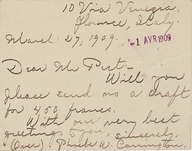 10 Via Venezia
Florence, Italy.
March 27, 1909.
-1 AVR 1909
Dear Mr Pist-
Will you
please send me a draft
for 450 francs.
With our very best
greetings I am, sincerely,
(Over) Phride W. Carrington.